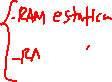 -RAM estatica
-RA